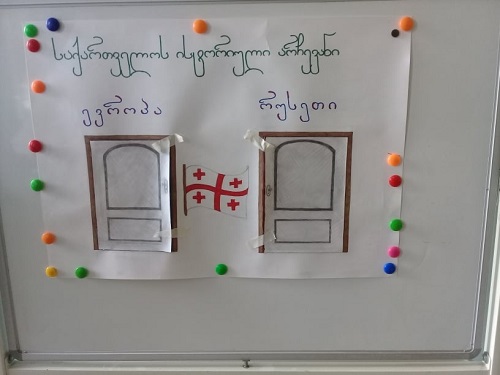 საქართველოს ისტორიული არჩევანი
ევროპა
რუსეთი